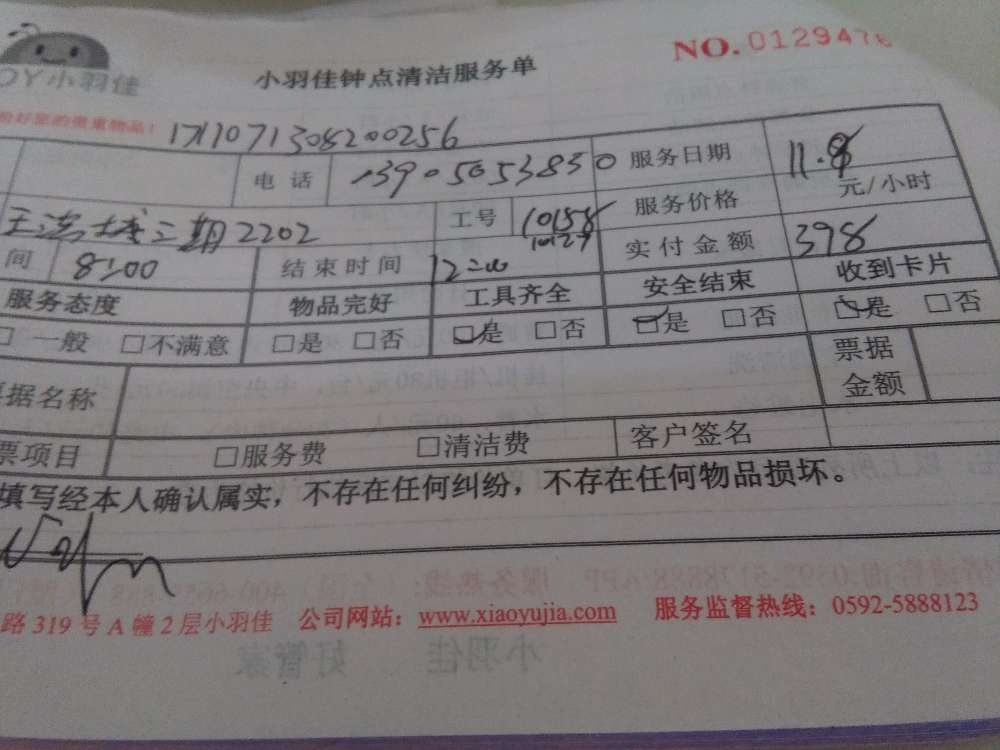 OY小羽佳
小羽佳钟点清洁服务单
NO.0129476
好您的贵重物品!
1711071308200256
电话 13905053830 服务日期 11.8
三期2202 工号 10188 10129 服务价格 元/小时
间 8:00 结束时间 12:00 实付金额 398
服务态度 物品完好 工具齐全 安全结束 收到卡片
□一般 □不满意 □是 □否 □是 □否 □是 □否 □是 □否
据名称 票据金额
票项目 □服务费 □清洁费 客户签名
填写经本人确认属实,不存在任何纠纷,不存在任何物品损坏。
路319号A幢2层小羽佳 公司网站:www.xiaoyujia.com 服务监督热线:0592-5888123